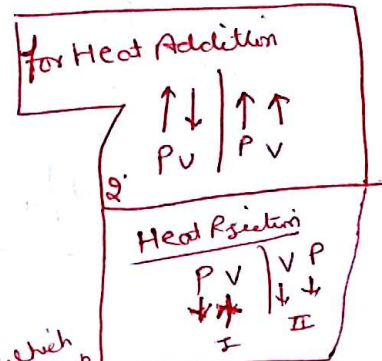 for Heat Addition
↑ ↓ | ↑ ↑
P V | P V
2.
Heat Rjection
P V | V P
↓ ↓ ↓
I II
which